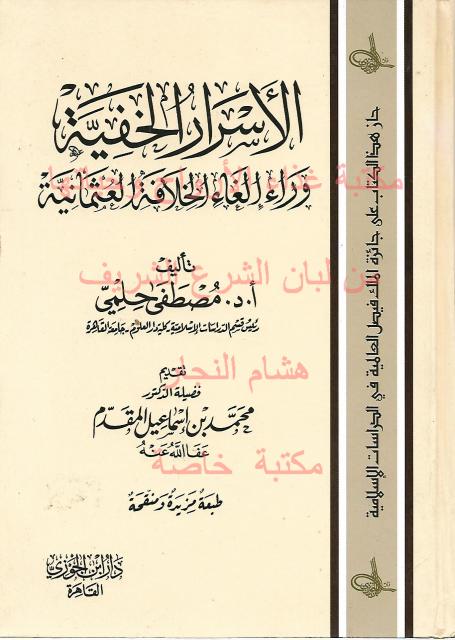 الأسرار الخفية
وراء إلغاء الخلافة العثمانية
مكتبة غذاء الأرواح وصحتها
تأليف
من لبان الشرع الشريف
أ.د. مصطفى حلمي
رئيس قسم الدراسات الإسلامية - كلية دار العلوم - جامعة القاهرة
هشام النجار
تقديم
فضيلة الدكتور
محمد بن إسماعيل المقدم
عفا الله عنه
مكتبة خاصة
طبعة مزيدة ومنقحة
دار ابن الجوزي
القاهرة
حاز هذا الكتاب على جائزة الملك فيصل العالمية في الدراسات الإسلامية